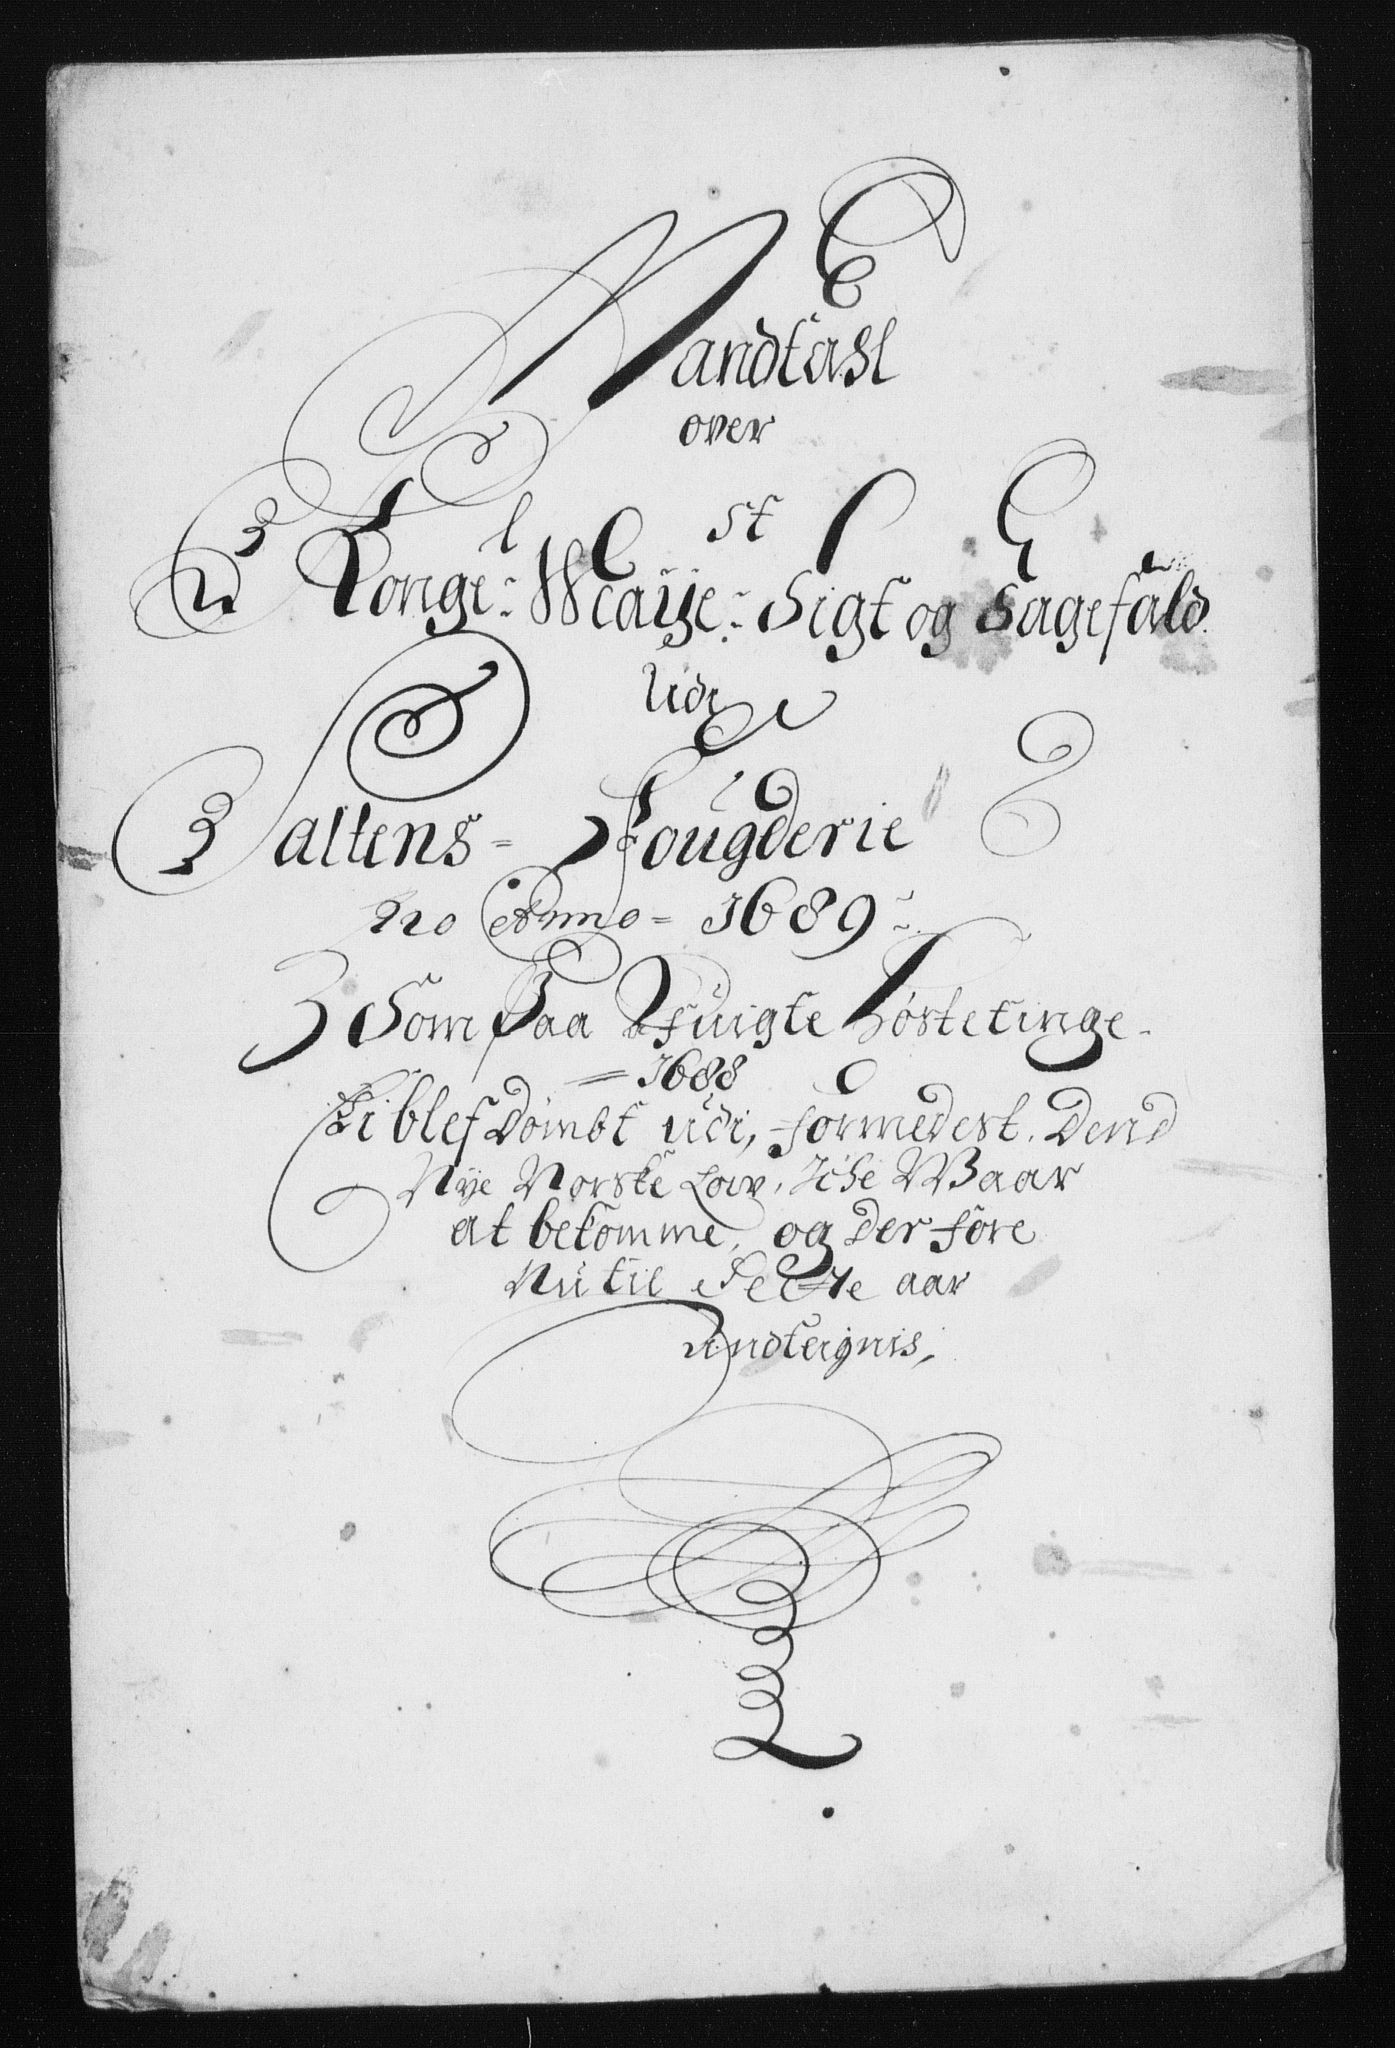 Mandtahl
over
Konge:l Maije:st Sigt og Sagefald
Udi
Saltens = Fougderie
pro Anno = 1689
Som Paa afuigte Høstetinge
= 1688
Ei blef Dömbt udi, formedest. Dend
Nye Norske Low, Iche Waar
at bekomme, og der fore
Nu til dette aar
Andteignis,